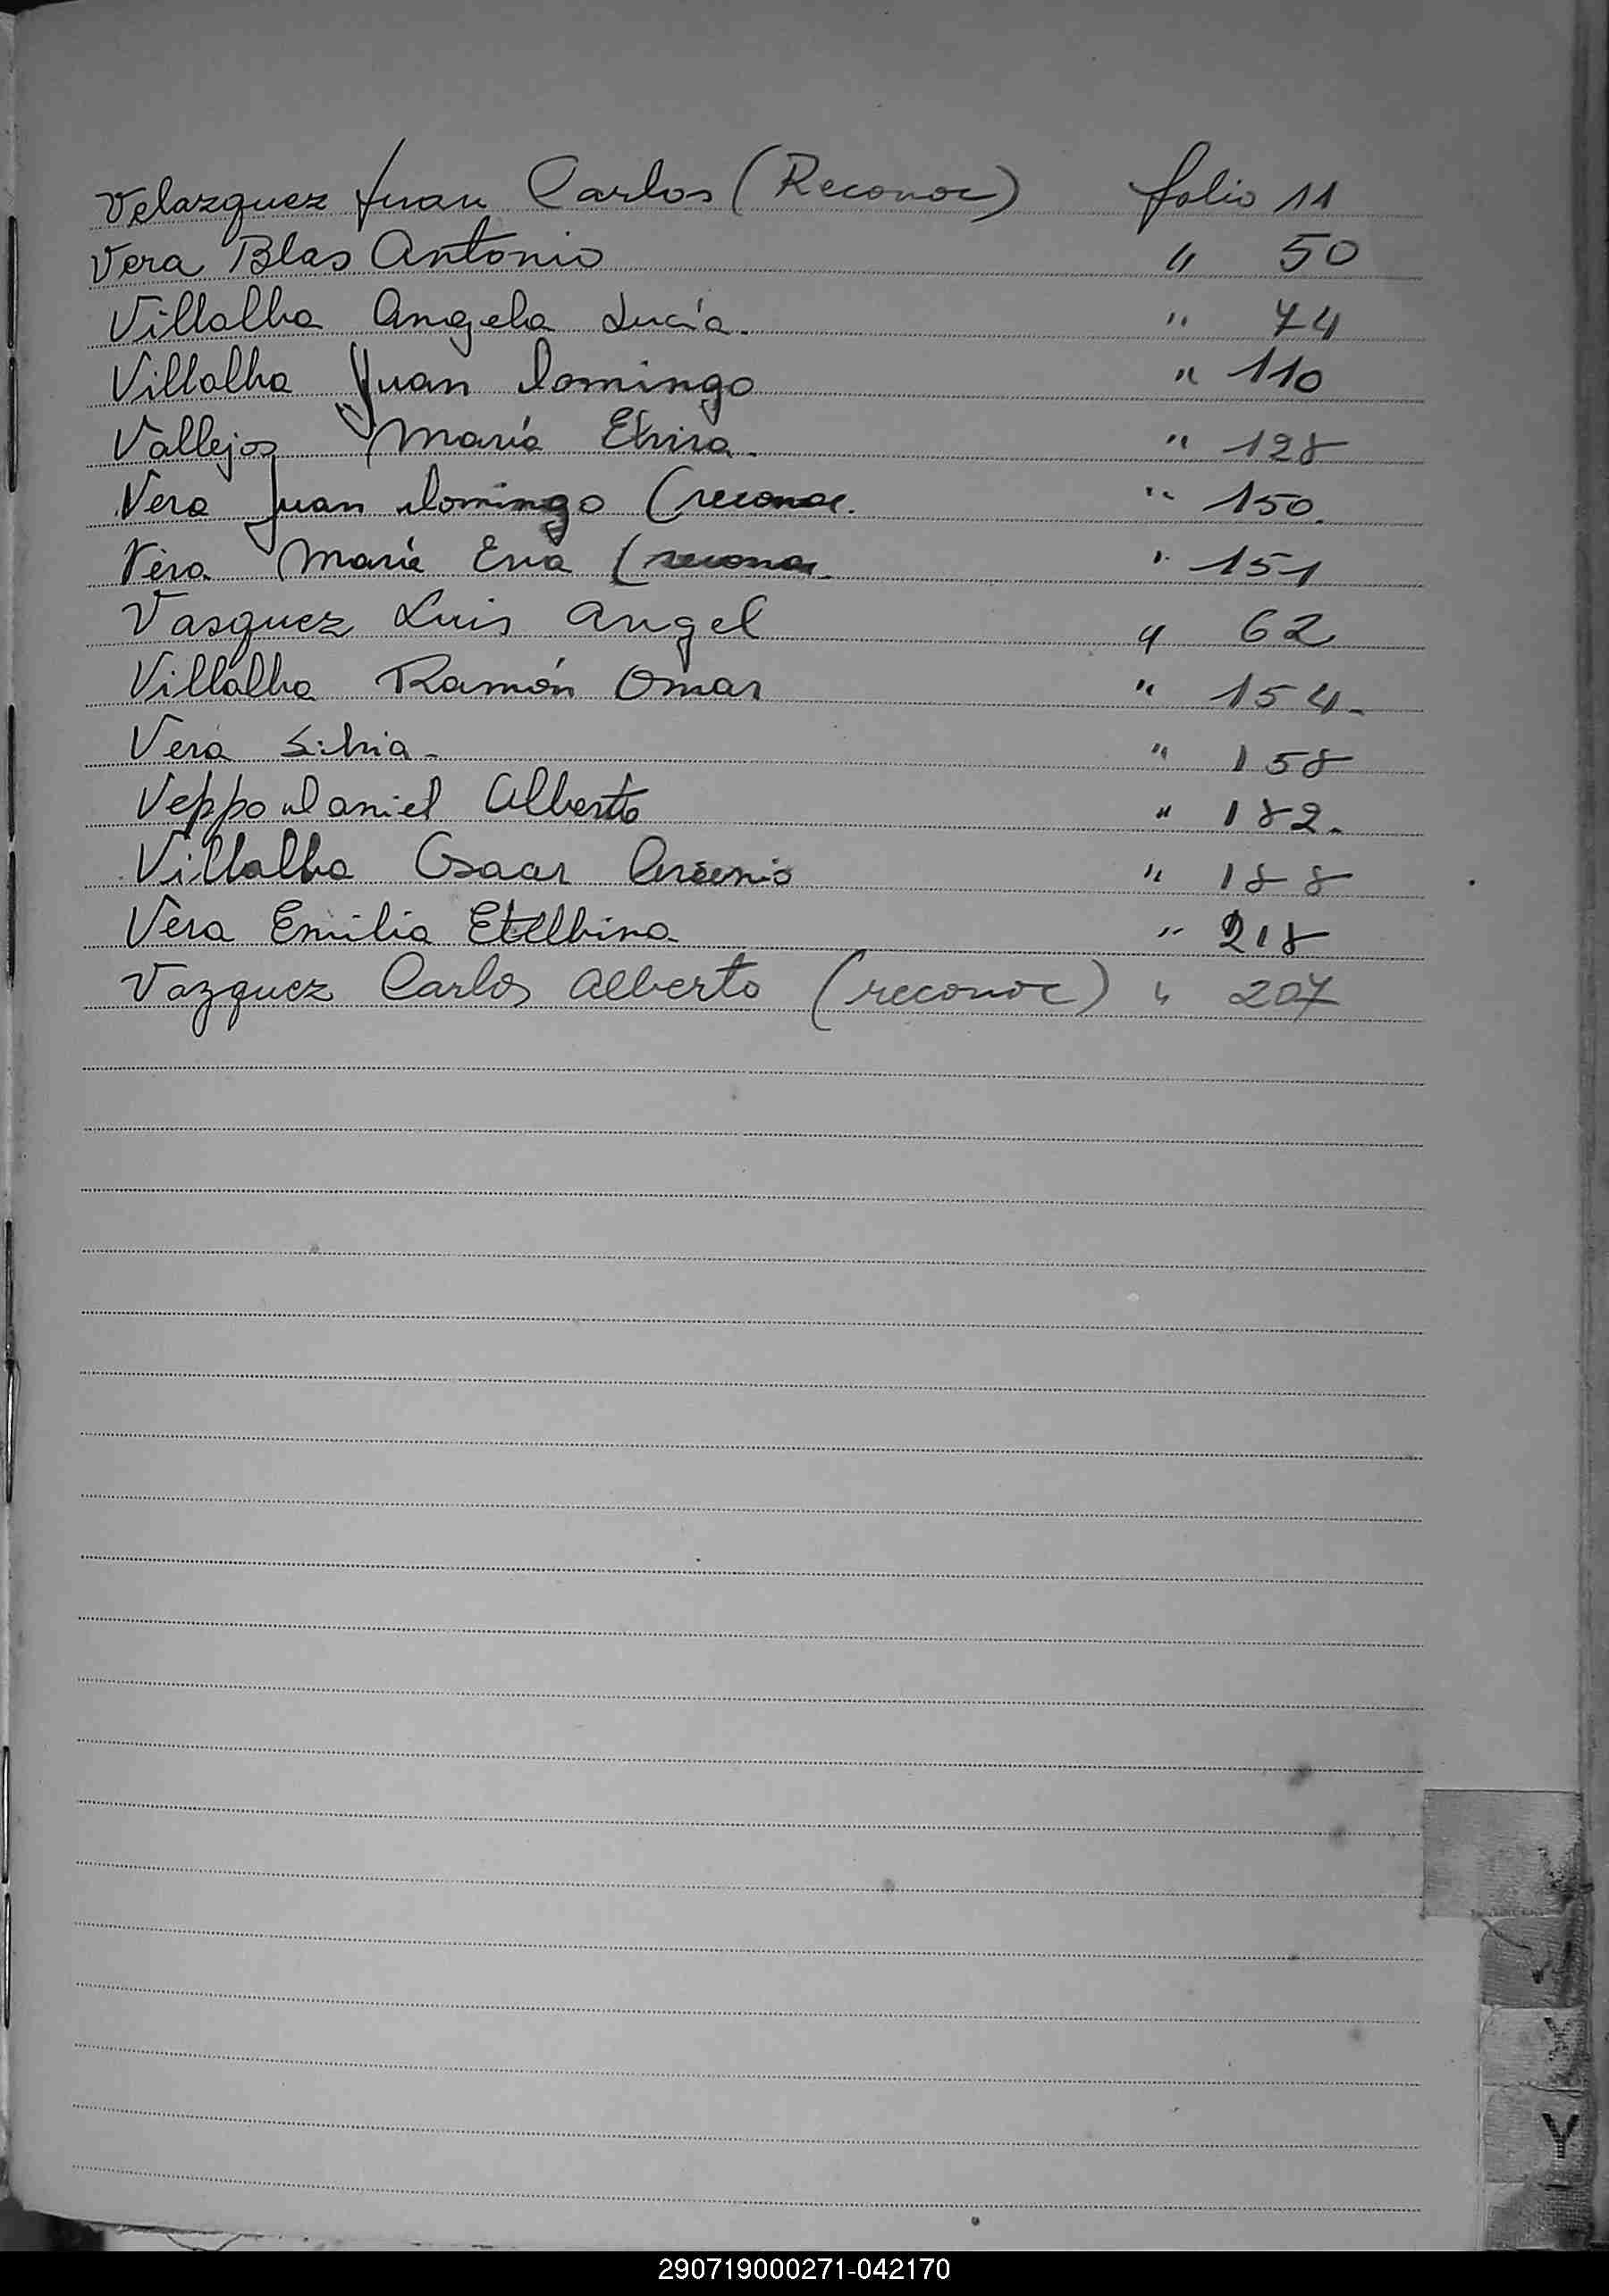 Velazquez Juan Carlos (Reconoc) folio 11
Vera Blas Antonio " 50
Villalba Angela Lucía. " 74
Villalba Juan Domingo " 110
Vallejos María Elvira. " 128
Vera Juan Domingo (reconoc. " 150.
Vera María Eva (reconoc. " 151
Vasquez Luis Angel " 62
Villalba Ramón Omar " 154.
Vera Silvia. " 158
Veppo Daniel Alberto " 182.
Villalba Oscar Arsenio " 188
Vera Emilia Etelbina " 218
Vazquez Carlos Alberto (reconoc) " 207
Y
290719000271-042170